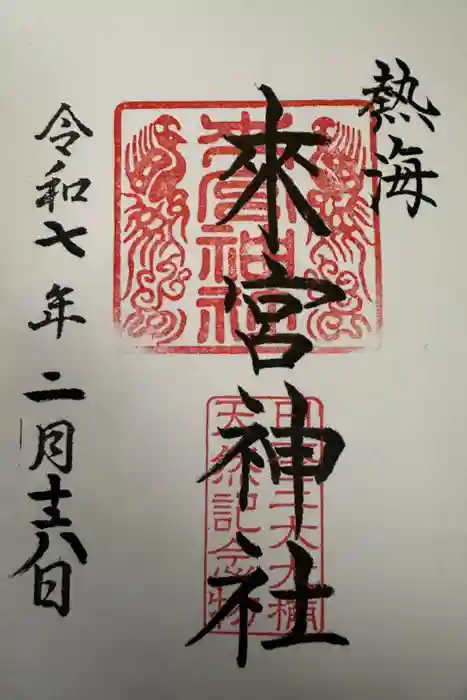 熱海
來宮神社
日本三大大楠
天然記念物
令和七年二月十八日